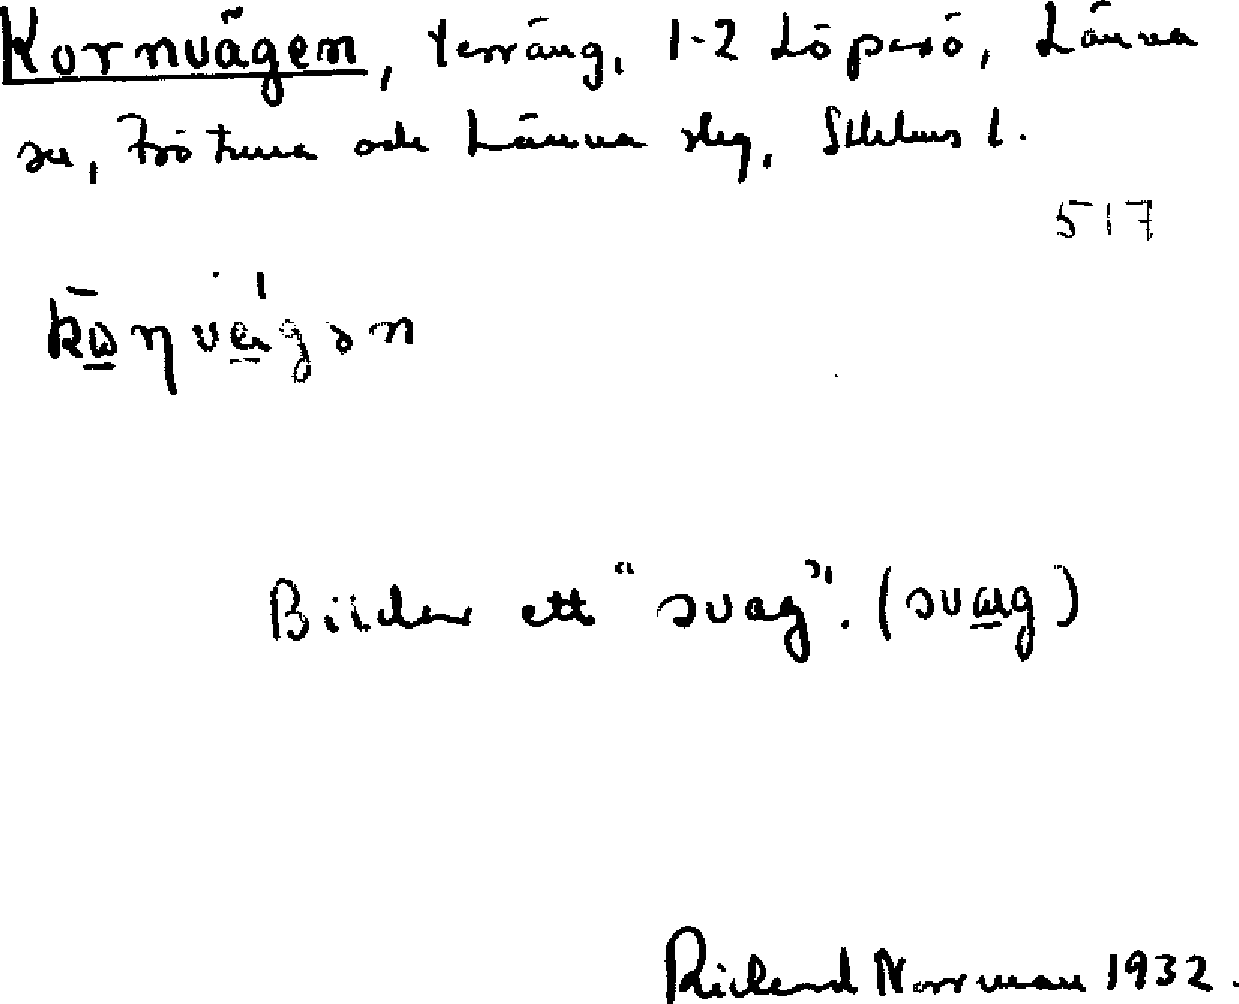 Kornvägen, terräng, 1-2 Löparö, Länna
sn, Frötuna och Länna slg, Sthlms l.
517
Bildar ett "svag". (svag)
Richard Norrman 1932.